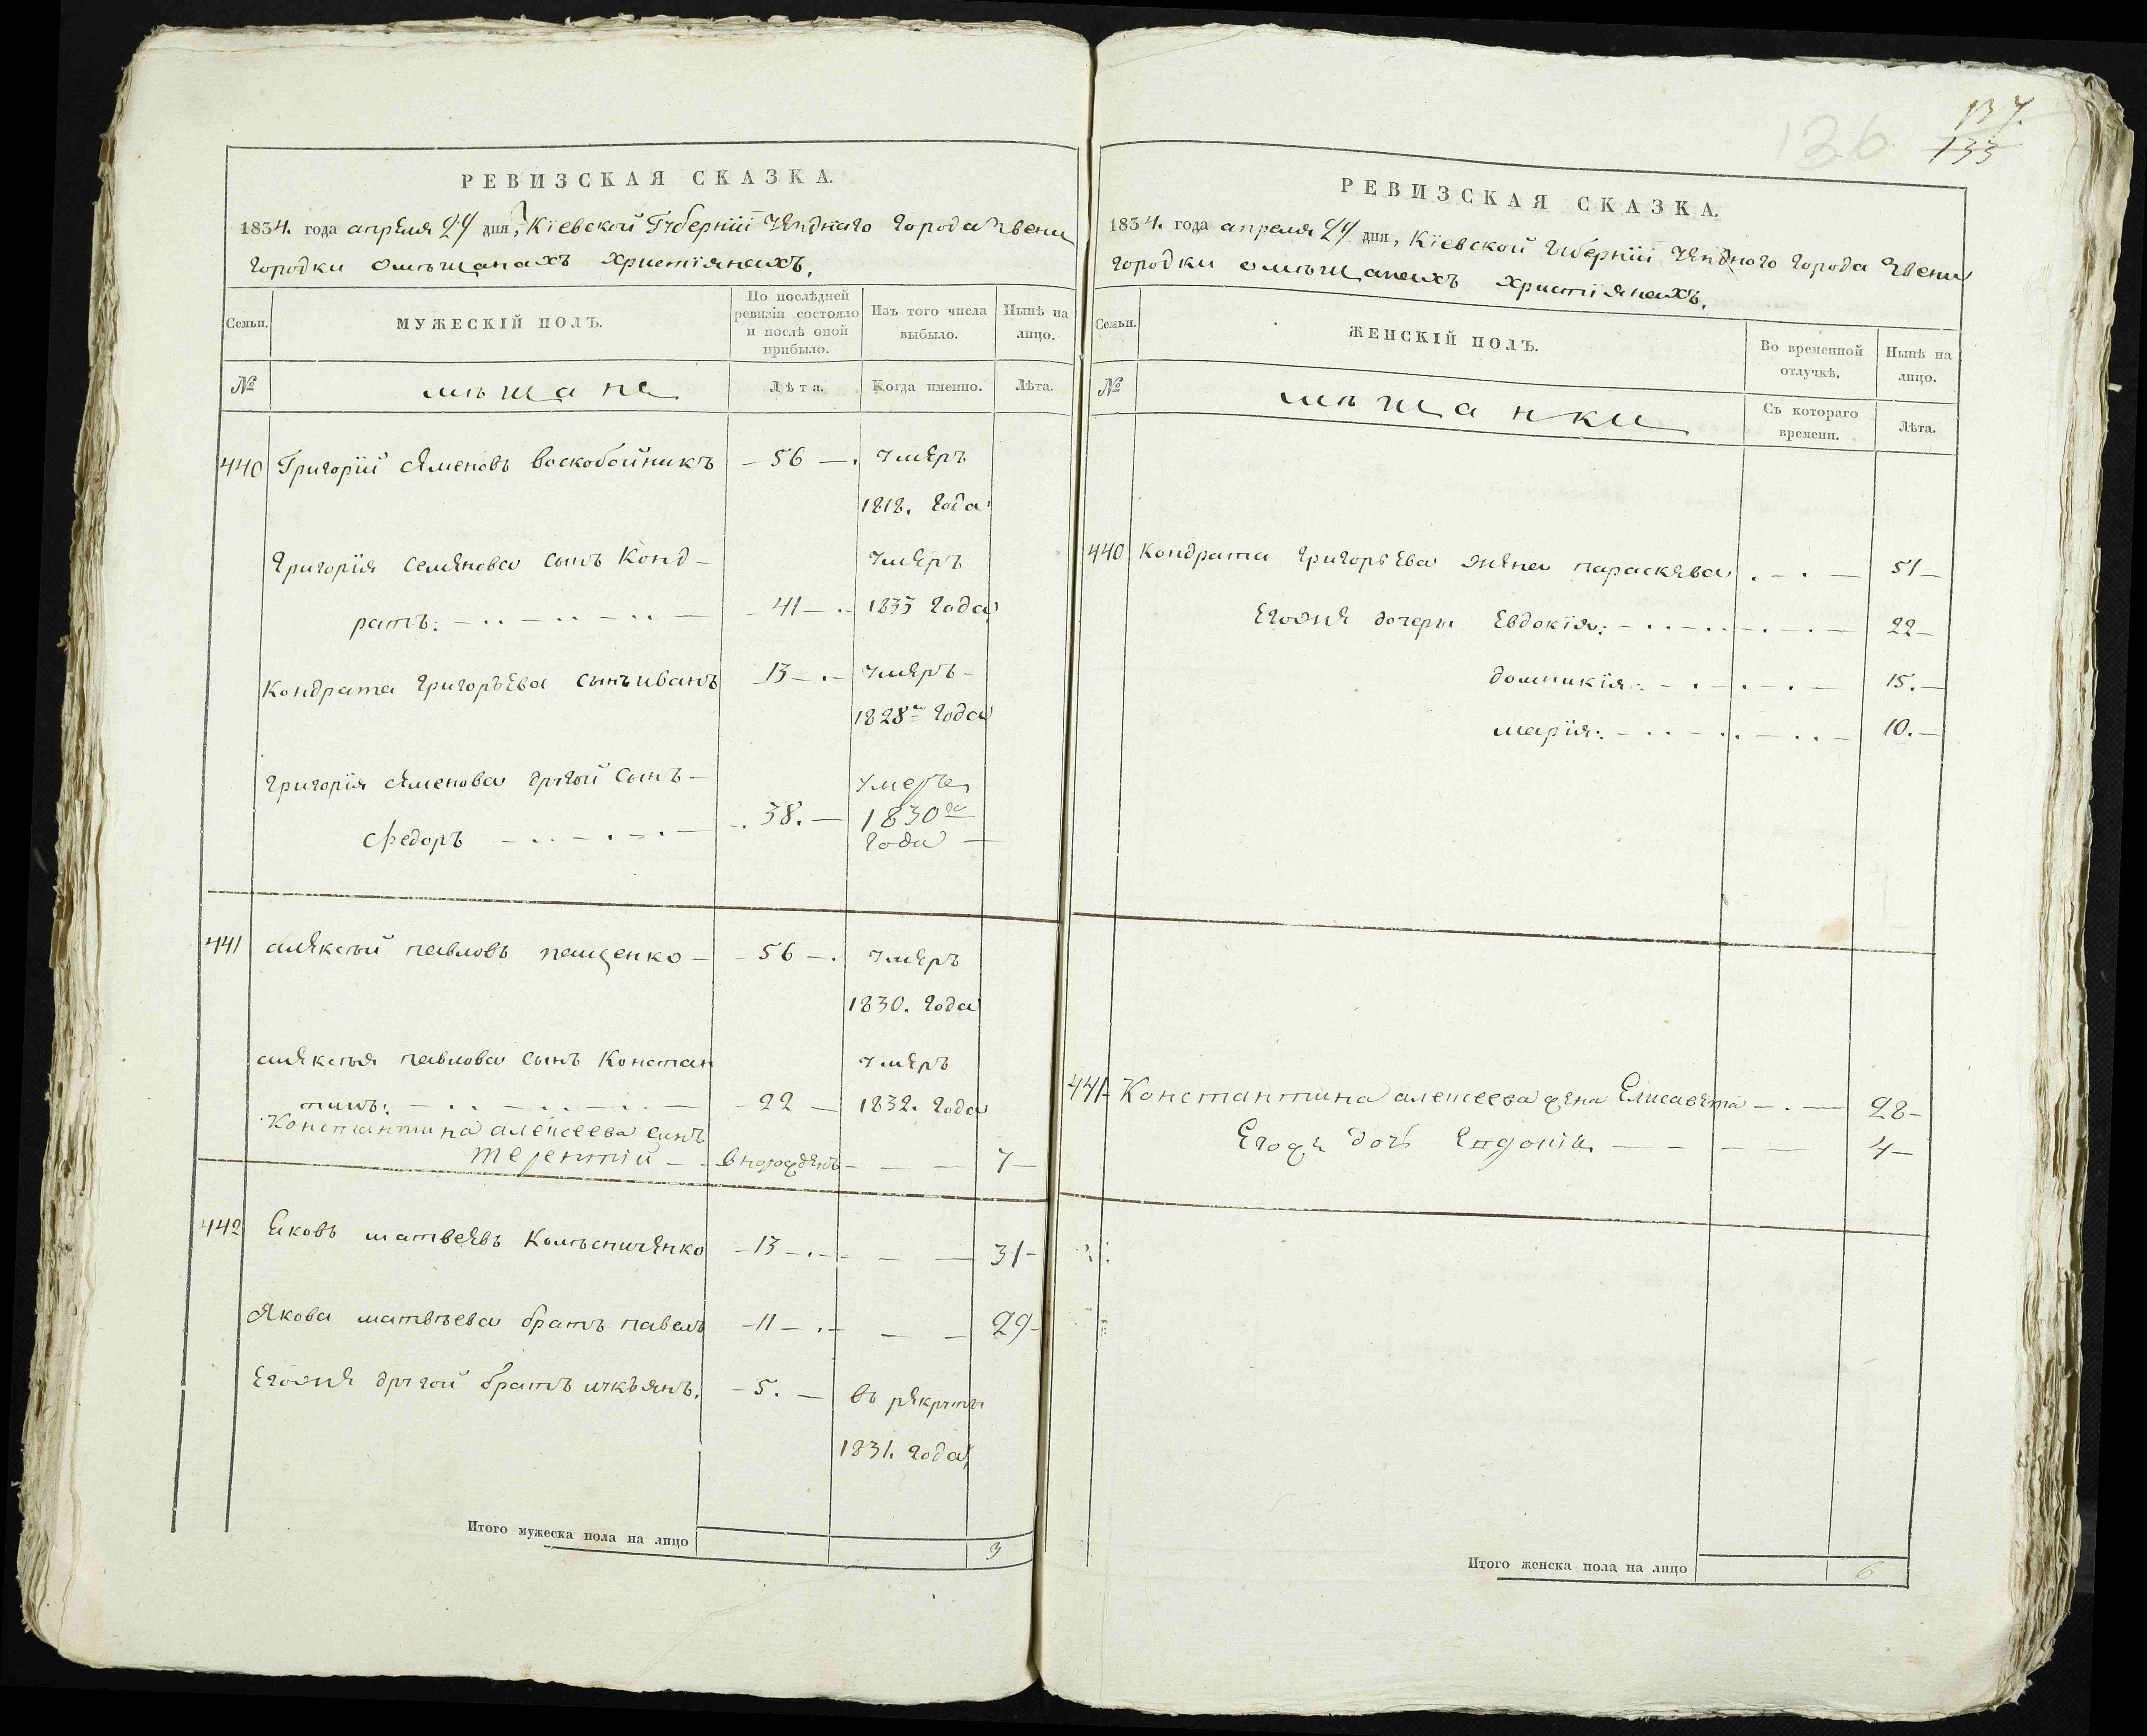 РЕВИЗСКАЯ СКАЗКА.
1834. года апреля 24 дня, Кіевской Губерніи Уезднаго города Звени
городки омѣщанахъ христіянахъ,
Семьи.
МУЖЕСКІЙ ПОЛЪ.
По послѣдней ревизіи состояло и послѣ оной прибыло.
Изъ того числа выбыло.
Нынѣ на лицо.
№
мѣщане
Лѣта.
Когда именно.
Лѣта.
440 Григорій Семеновъ Воскобойникъ — 56 — умеръ
1818. года
Григорія Семенова сынъ Конд- умеръ
ратъ: — 41 — 1833 года
Кондрата Григорьева сынъ иванъ 13 — умеръ —
1828го года
Григорія Семенова другой сынъ — умеръ
Федоръ — 38. — 1830го
года —
441 алексѣй павловъ пащенко — 56 — умеръ
1830. года
алексѣя павлова сынъ Констан умеръ
тинъ: — 22 — 1832. года
Константина алексеева сынъ
Терентий — вновожденъ — — — 7 —
442 Яковъ матвеевъ Колѣсниченко — 13 — — — 31 —
Якова матвѣева братъ павелъ — 11 — — — 29 —
Егожъ другой братъ — 5. — въ рекруты
1831. года
Итого мужеска пола на лицо 3
136
137.
133
РЕВИЗСКАЯ СКАЗКА.
1834. года апреля 24 дня, Кіевской Губерніи Уезднаго города Звени
городки омѣщанахъ христіянахъ,
Семьи.
ЖЕНСКІЙ ПОЛЪ.
Во временной отлучкѣ.
Нынѣ на лицо.
№
мѣщанки
Съ котораго времени.
Лѣта.
440 Кондрата григорьева жена параскева — 51 —
Егоже дочери Евдокія: — 22 —
домникія: — 15. —
марія: — 10. —
441 Константина алексеева жена Елисавета — 28 —
Егоже дочь — 4 —
Итого женска пола на лицо 6